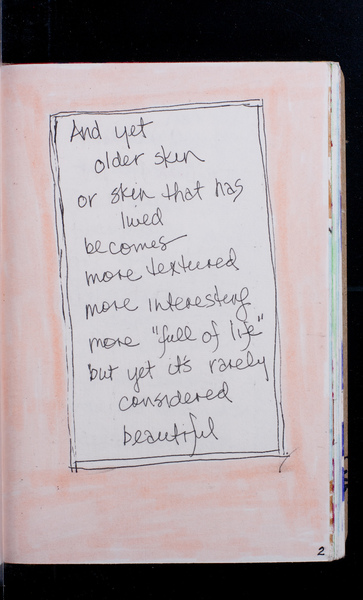 And yet
older skin
or skin that has
lived
becomes
more textured
more interesting
more "full of life"
but yet it's rarely
considered
beautiful
2